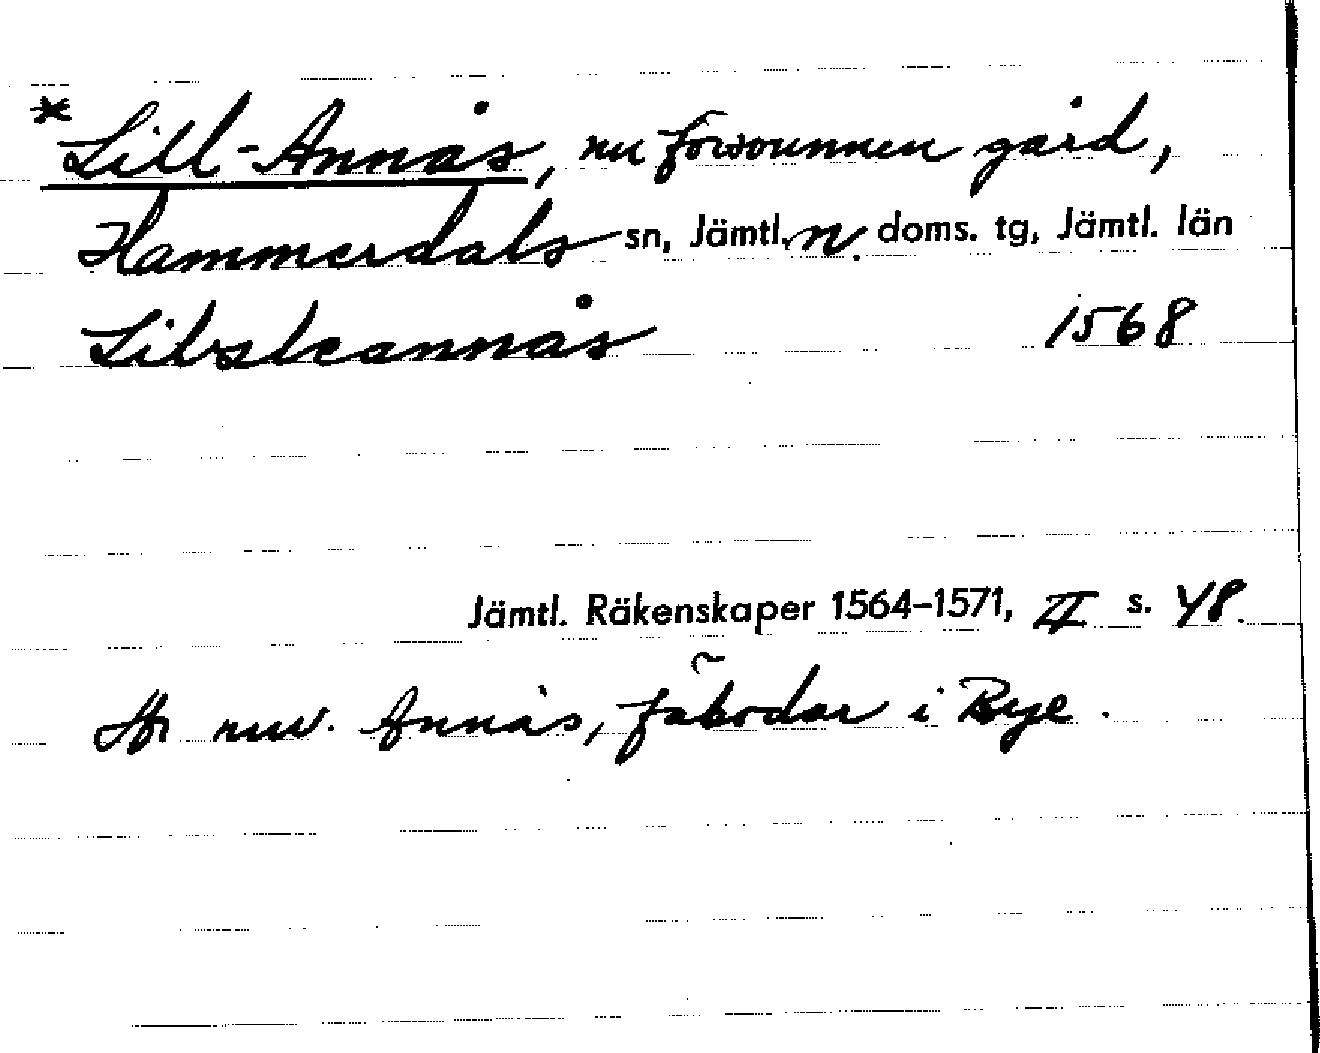 * Lill-Annås, nu försvunnen gård,
Hammerdals sn, Jämtl. n. doms. tg, Jämtl. län
Lilsleannås 1568
Jämtl. Räkenskaper 1564-1571, II s. 48.
Är nuv. Annås, fäbodar i Bye.